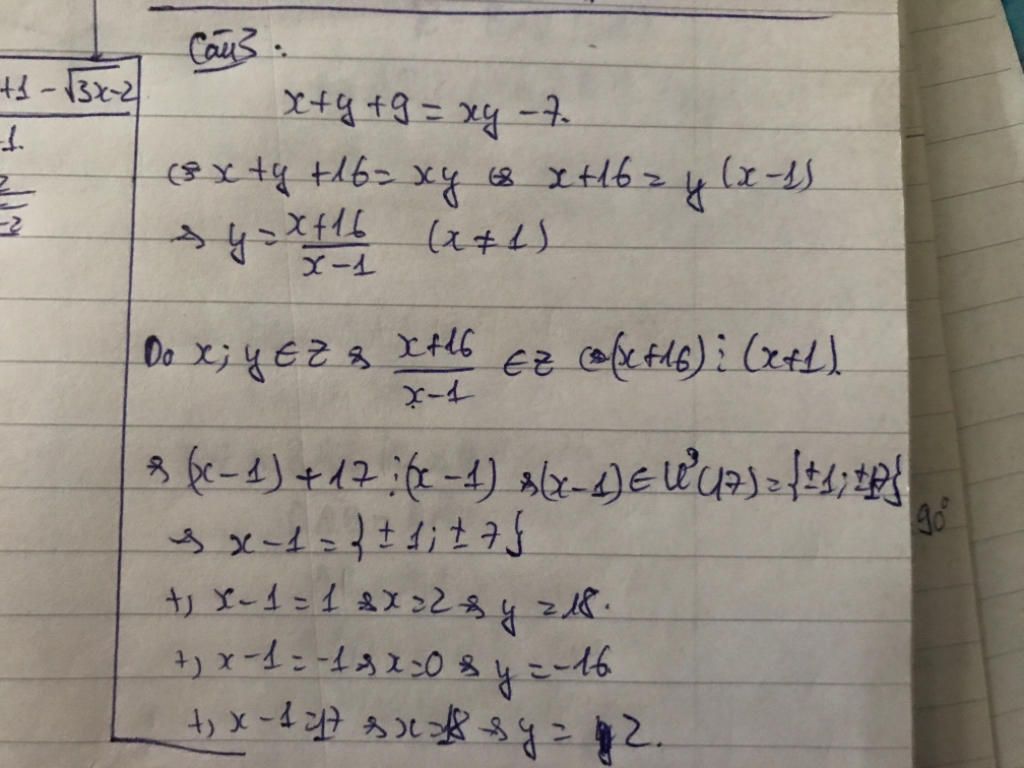 Câu 3:
+1 - √3x-2
x+y+9 = xy -7.
-1.
⇔ x+y+16 = xy ⇔ x+16 = y(x-1)
2
-2
⇒ y = \frac{x+16}{x-1} (x ≠ 1)
Do x; y ∈ Z ⇒ \frac{x+16}{x-1} ∈ Z ⇔ (x+16) ⋮ (x+1).
⇒ (x-1) + 17 ⋮ (x-1) ⇒ (x-1) ∈ Ư(17) = {±1; ±17}
90°
⇒ x-1 = {±1; ±7}
+, x-1 = 1 ⇒ x=2 ⇒ y = 18.
+, x-1 = -1 ⇒ x=0 ⇒ y = -16
+, x-1 = 17 ⇒ x=18 ⇒ y = 2.